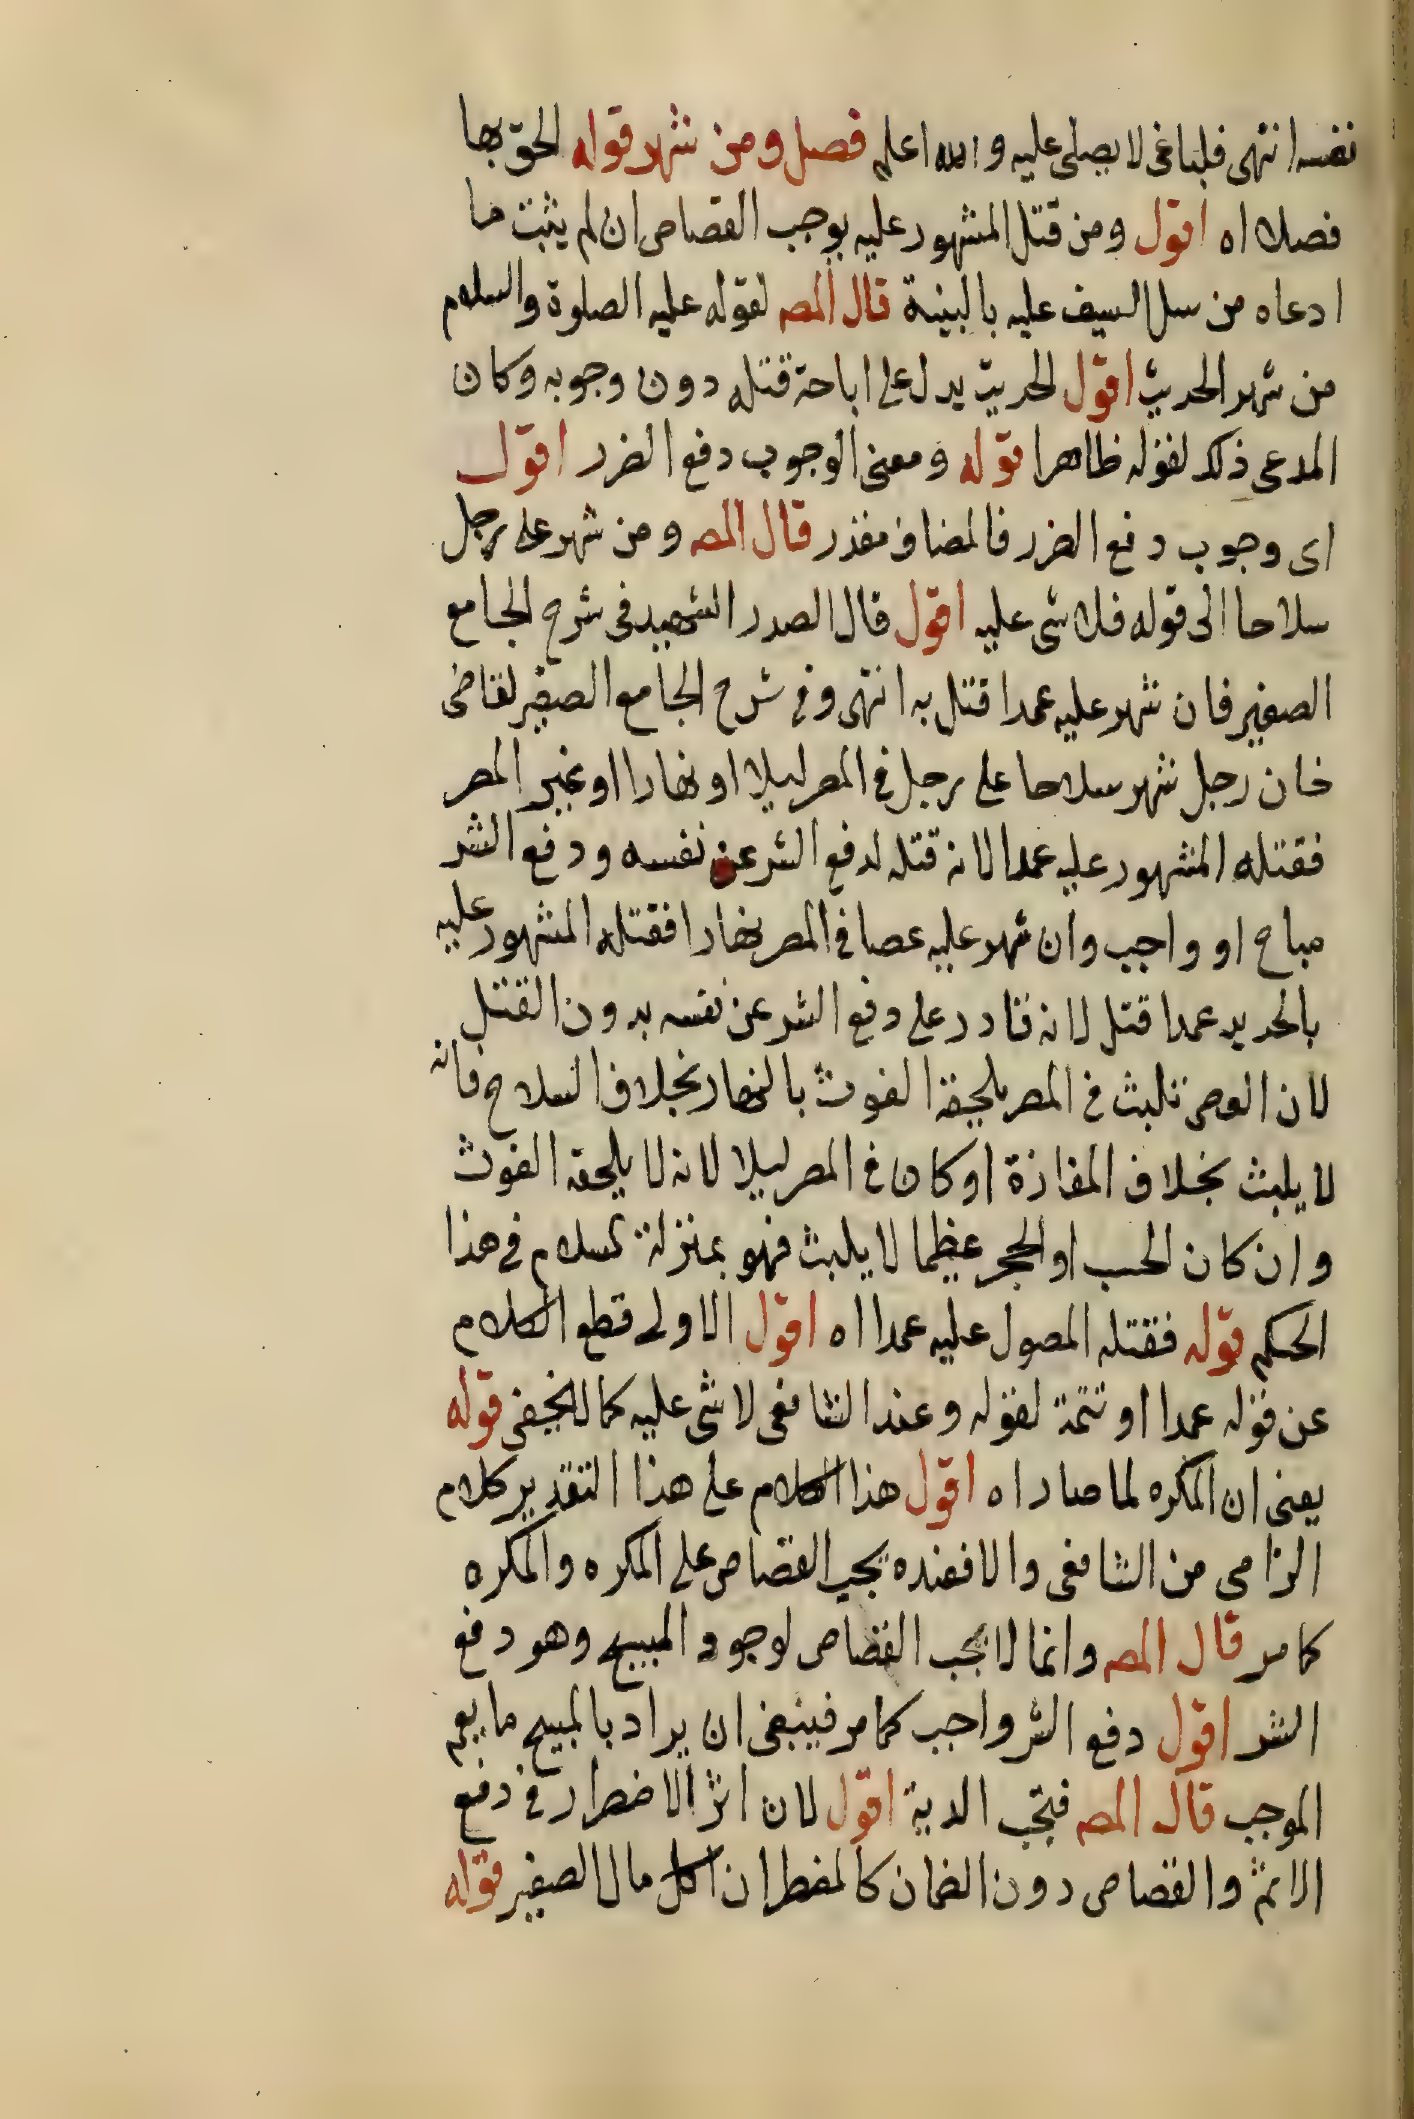 نفسه انتهى فلباغى لا يصلى عليه والله اعلم فصل ومن شهر قوله الحق بها
فصلا اه اقول ومن قتل المشهور عليه يوجب القصاص ان لم يثبت ما
ادعاه من سل السيف عليه بالبينة قال المص لقوله عليه الصلوة والسلام
من شهر الحديث اقول الحديث يدل على اباحة قتله دون وجوبه وكان
المدعى ذلك لقوله ظاهرا قوله ومعنى الوجوب دفع الضرر اقول
اى وجوب دفع الضرر فالمضاف مقدر قال المص ومن شهر على رجل
سلاحا الى قوله فلا شى عليه اقول قال الصدر الشهيد فى شرح الجامع
الصغير فان شهر عليه عمدا قتل به انتهى وفى شرح الجامع الصغير لقاضى
خان رجل شهر سلاحا على رجل فى المصر ليلا او نهارا او غير المصر
فقتله المشهور عليه عمدا لانه قتله لدفع الشر عن نفسه ودفع الشر
مباح او واجب وان شهر عليه عصا فى المصر نهارا فقتله المشهور عليه
بالحديد عمدا قتل لانه قادر على دفع الشر عن نفسه بدون القتل
لان العصى تلبث فى المصر يلحقه الغوث بالنهار بخلاف السلاح فانه
لا يلبث بخلاف المفازة او كان فى المصر ليلا لانه لا يلحقه الغوث
وان كان الحسب او الحجر عظيما لا يلبث فهو بمنزلة السلاح فى هذا
الحكم قوله فقتله المصول عليه عمدا اه اقول الاولى قطع الكلام
عن قوله عمدا او تتمة لقوله وعند الشافعى لا شى عليه كما لا يخفى قوله
يعنى ان المكره لما صار اه اقول هذا الكلام على هذا التقدير كلام
الزامى من الشافعى والا فعنده يجب القصاص على المكره والمكره
كما مر قال المص وانما لا يجب القصاص لوجود المبيح وهو دفع
الشر اقول دفع الشر واجب كما مر فينبغى ان يراد بالمبيح ما يعم
الموجب قال المص فتجب الدية اقول لان اثر الاضطرار فى دفع
الاثم والقصاص دون الضمان كالمضطر ان اكل مال الصغير قوله